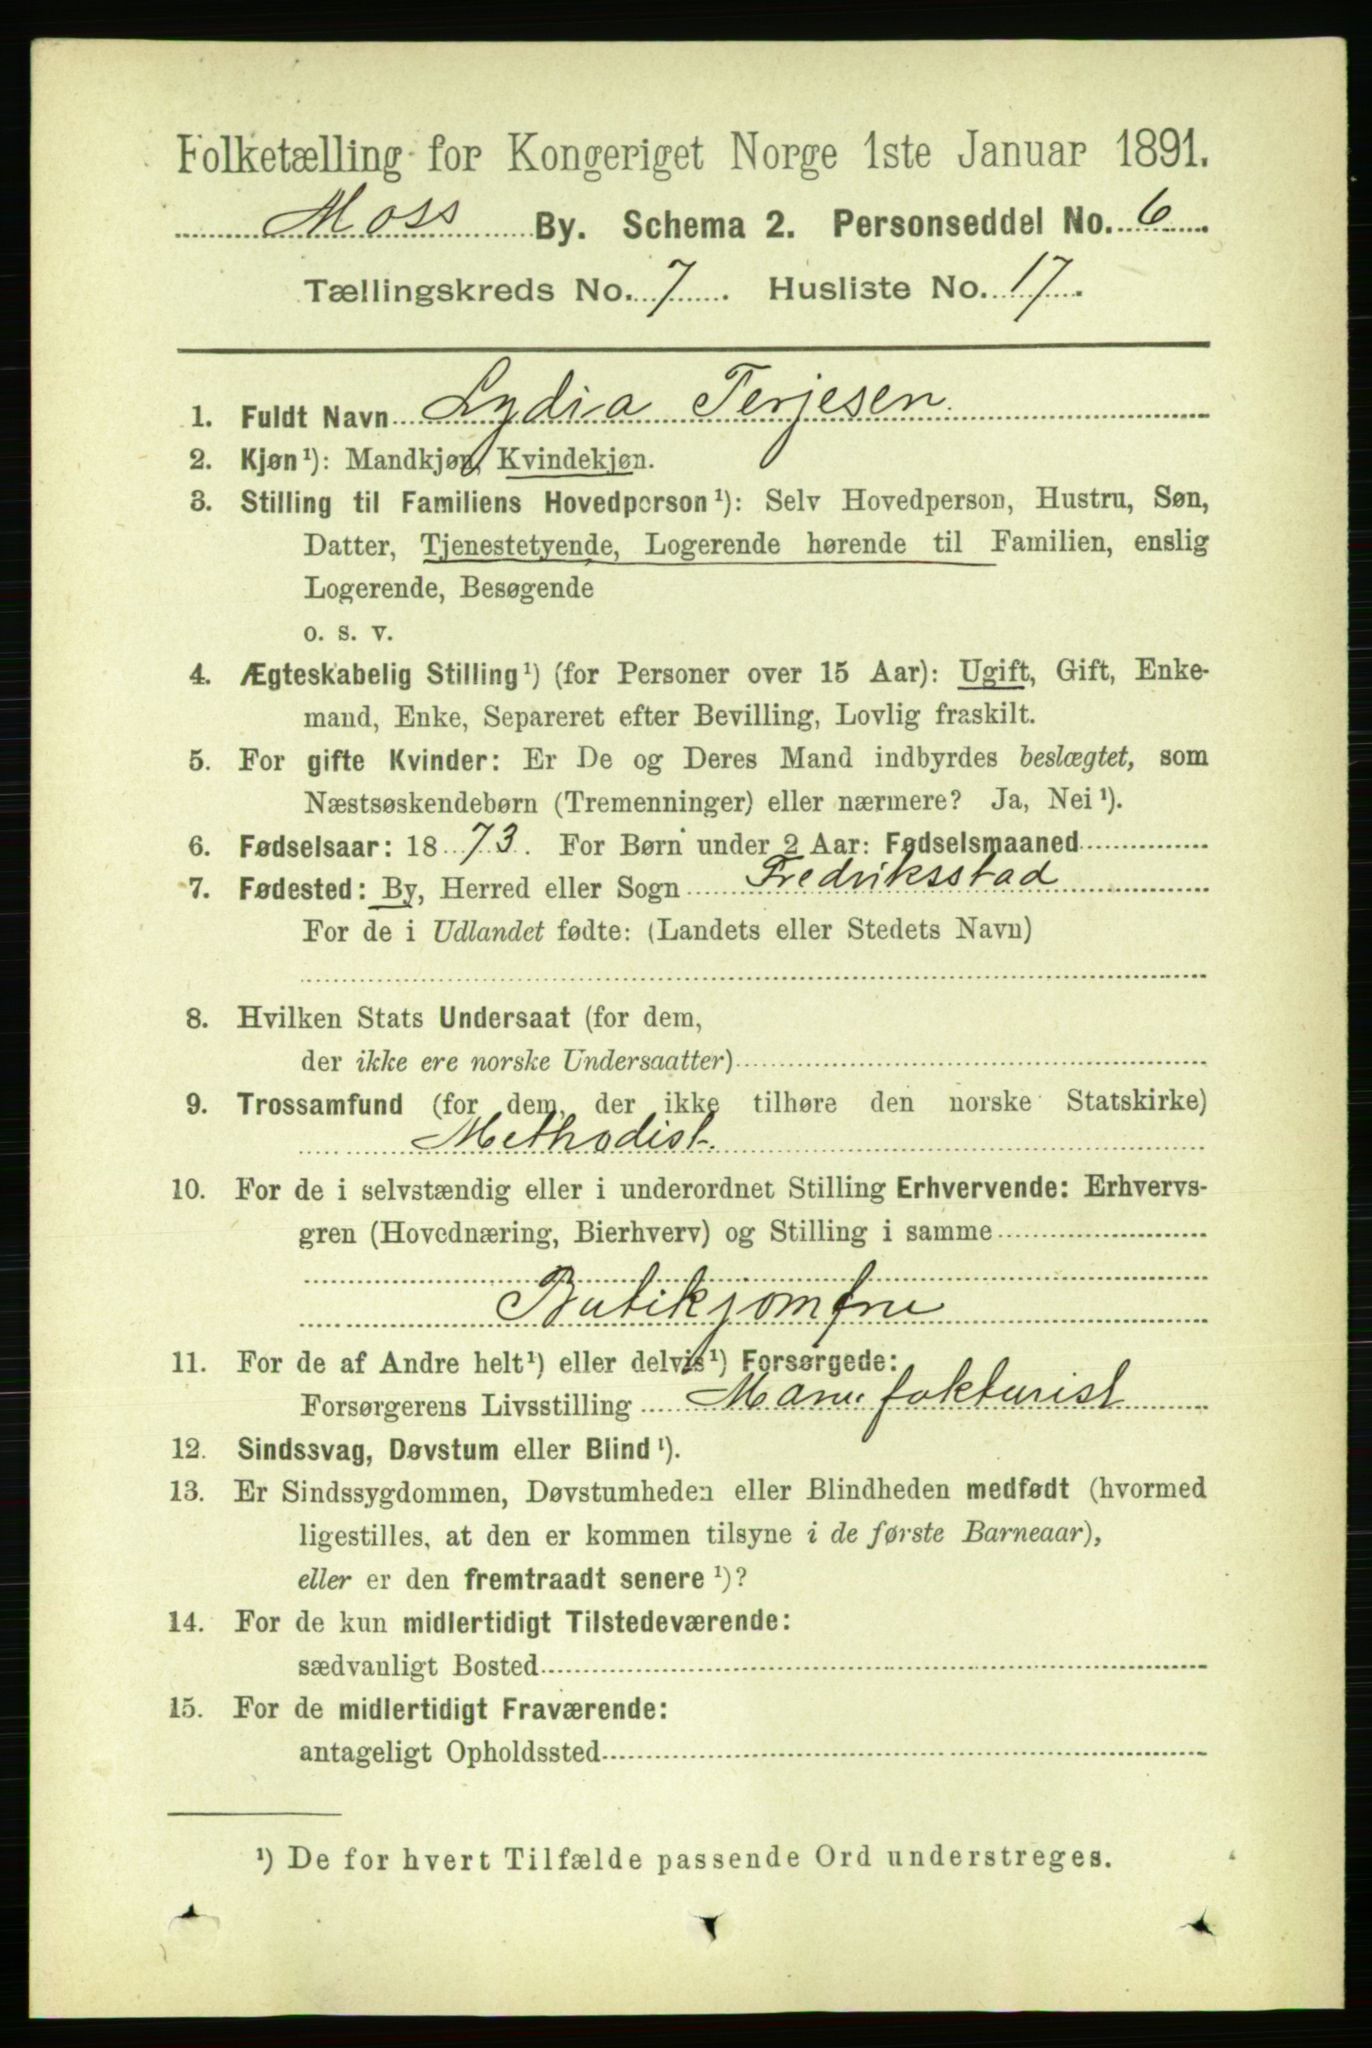 Folketælling for Kongeriget Norge 1ste Januar 1891.
Moss By. Schema 2. Personseddel No. 6
Tællingskreds No. 7. Husliste No. 17.
1. Fuldt Navn Lydia Terjesen
2. Kjøn¹): Mandkjøn, Kvindekjøn.
3. Stilling til Familiens Hovedperson¹): Selv Hovedperson, Hustru, Søn,
Datter, Tjenestetyende, Logerende hørende til Familien, enslig
Logerende, Besøgende
o. s. v.
4. Ægteskabelig Stilling¹) (for Personer over 15 Aar): Ugift, Gift, Enke-
mand, Enke, Separeret efter Bevilling, Lovlig fraskilt.
5. For gifte Kvinder: Er De og Deres Mand indbyrdes beslægtet, som
Næstsøskendebørn (Tremenninger) eller nærmere? Ja, Nei¹).
6. Fødselsaar: 1873. For Børn under 2 Aar: Fødselsmaaned
7. Fødested: By, Herred eller Sogn Fredriksstad
For de i Udlandet fødte: (Landets eller Stedets Navn)
8. Hvilken Stats Undersaat (for dem,
der ikke ere norske Undersaatter)
9. Trossamfund (for dem, der ikke tilhøre den norske Statskirke)
Methodist.
10. For de i selvstændig eller i underordnet Stilling Erhvervende: Erhvervs-
gren (Hovednæring, Bierhverv) og Stilling i samme
Butikjomfru
11. For de af Andre helt¹) eller delvis¹) Forsørgede:
Forsørgerens Livsstilling Manufakturist
12. Sindssvag, Døvstum eller Blind¹).
13. Er Sindssygdommen, Døvstumheden eller Blindheden medfødt (hvormed
ligestilles, at den er kommen tilsyne i de første Barneaar),
eller er den fremtraadt senere¹)?
14. For de kun midlertidigt Tilstedeværende:
sædvanligt Bosted
15. For de midlertidigt Fraværende:
antageligt Opholdssted
¹) De for hvert Tilfælde passende Ord understreges.